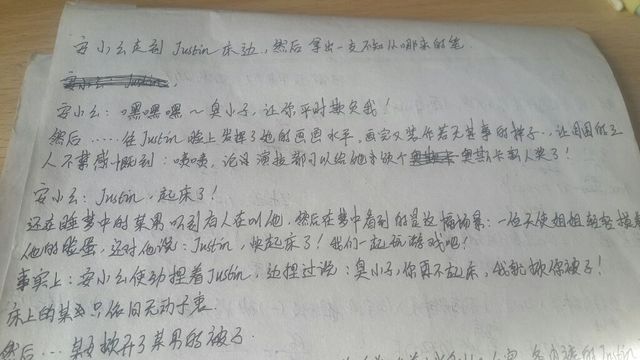 安小幺走到Justin床边，然后拿出一支不知从哪来的笔.
安小幺：嘿嘿嘿～臭小子，让你平时欺负我！
然后……在Justin脸上发挥了她的画画水平，画完又装作若无其事的样子…，让周围的工
人不禁感慨到：啧啧，论演技都可以给她颁个奥斯卡新人奖了！
安小幺：Justin，起床了！
还在睡梦中的某男听到有人在叫他，然后在梦中看到的是这幅场景：一位天使姐姐轻轻摸着
他的脸蛋，还对他说：Justin，快起床了！我们一起玩游戏吧！
事实上：安小幺使劲捏着Justin，边捏边说：臭小子，你再不起床，我就掀你被子！
床上的某男只依旧无动于衷.
然后…某女掀开了某男的被子.